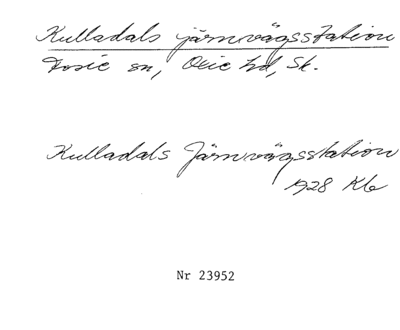 Kulladals järnvägsstation
Fosie sn, Oxie hd, Sk.
Kulladals Järnvägsstation
1928 Kb
Nr 23952